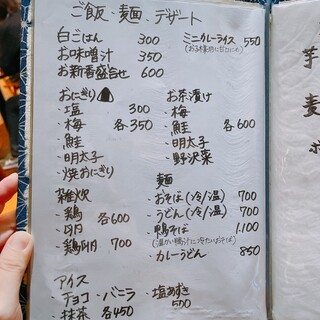 ご飯、麺、デザート
白ごはん 300
お味噌汁 350
お新香盛合せ 600
ミニカレーライス 550
おにぎり
・塩 300
・梅
・鮭 各350
・明太子
・焼おにぎり
お茶漬け
・梅
・鮭 各600
・明太子
・野沢菜
雑炊
・鶏
・卵 各600
・鶏卵 700
麺
・おそば(冷/温) 700
・うどん(冷/温) 700
・鴨そば 1,100
(温かい鴨汁に冷たいおそば)
・カレーうどん 850
アイス
・チョコ・バニラ
・抹茶 各450
・塩あずき
500
芋
麦